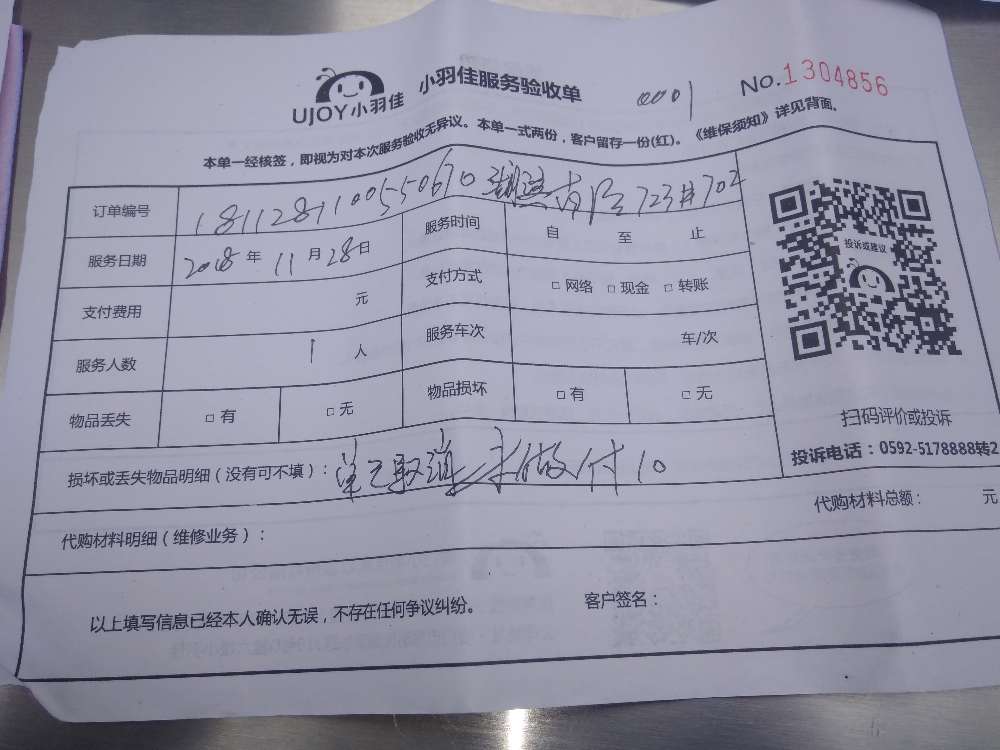 UJOY小羽佳 小羽佳服务验收单 0001 No.1304856
本单一经核签，即视为对本次服务验收无异议。本单一式两份，客户留存一份(红)。《维保须知》详见背面。
订单编号 181128110055 0670 723#702
服务日期 2018年11月28日 服务时间 自 至 止
支付费用 元 支付方式 □ 网络 □ 现金 □ 转账
服务人数 1 人 服务车次 车/次
物品丢失 □ 有 □ 无 物品损坏 □ 有 □ 无
投诉或建议
扫码评价或投诉
投诉电话：0592-5178888转2
损坏或丢失物品明细（没有可不填）：单已取消 未做付10
代购材料明细（维修业务）： 代购材料总额： 元
以上填写信息已经本人确认无误，不存在任何争议纠纷。 客户签名：